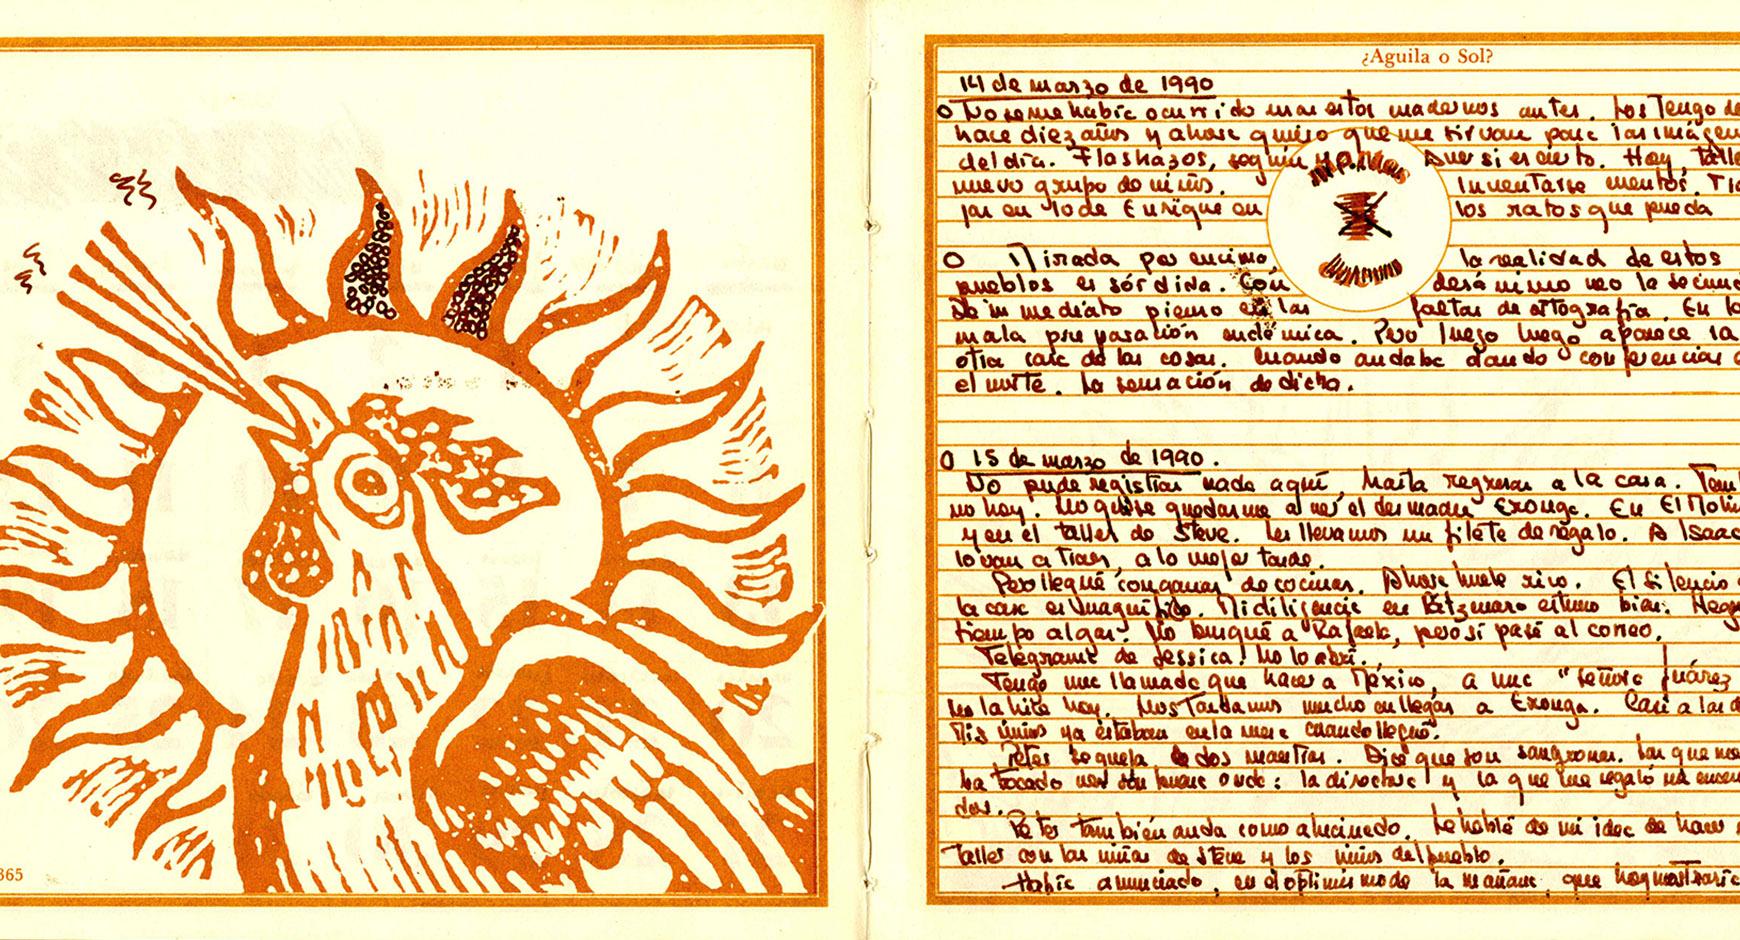 365
¿Aguila o Sol?
14 de marzo de 1990
O No se me había ocurrido usar estos cuadernos antes. Los Tengo de
hace diez años y ahora quiero que me sirvan para las imágen
del día. Flashazos, según Que si es cierto. Hay, Talle
nuevo grupo de niños. Inventarse cuentos.
en lo de Enrique en los ratos que pueda
O Mirada por encima, la realidad de estos
pueblos es sórdida. Con desánimo veo la secund
De inmediato pienso en las faltas de ortografía. En la
mala preparación endémica. Pero luego luego aparece la
otra cara de las cosas. Cuando andaba dando conferencias
el norte. La sensación de dicha.
O 15 de marzo de 1990.
No pude registrar nada aquí, hasta regresar a la casa.
no hoy. No quise quedarme al ver el desmadre Exonga. En El Molin
y en el taller de Steve. Les llevamos un filete de regalo. A Isaac
lo van a traer, a lo mejor tarde.
Pero llegué con ganas de cocinar. Ahora huele rico. El silencio
la casa es magnífico. Mi diligencia en Pátzcuaro estuvo bien.
tiempo algas. No busqué a Rafaela, pero sí pasé al correo.
Telegrama de Jessica. No lo abrí.
Tengo una llamada que hacer a México, a una "señora Juárez
No la hice hoy. Nos Tardamos mucho en llegar a Exonga. Casi a las d
Mis niños ya estaban en la mesa cuando llegué.
Peter se queja de dos maestras. Dice que son sangronas. Las que me
ha tocado ver son buena onda: la directora y la que me regaló
dos.
Peter también anda como alucinado. Le hablé de mi idea de hacer
Taller con las niñas de Steve y los niños del pueblo.
Había anunciado, en el optimismo de la mañana, que hoy mostraría